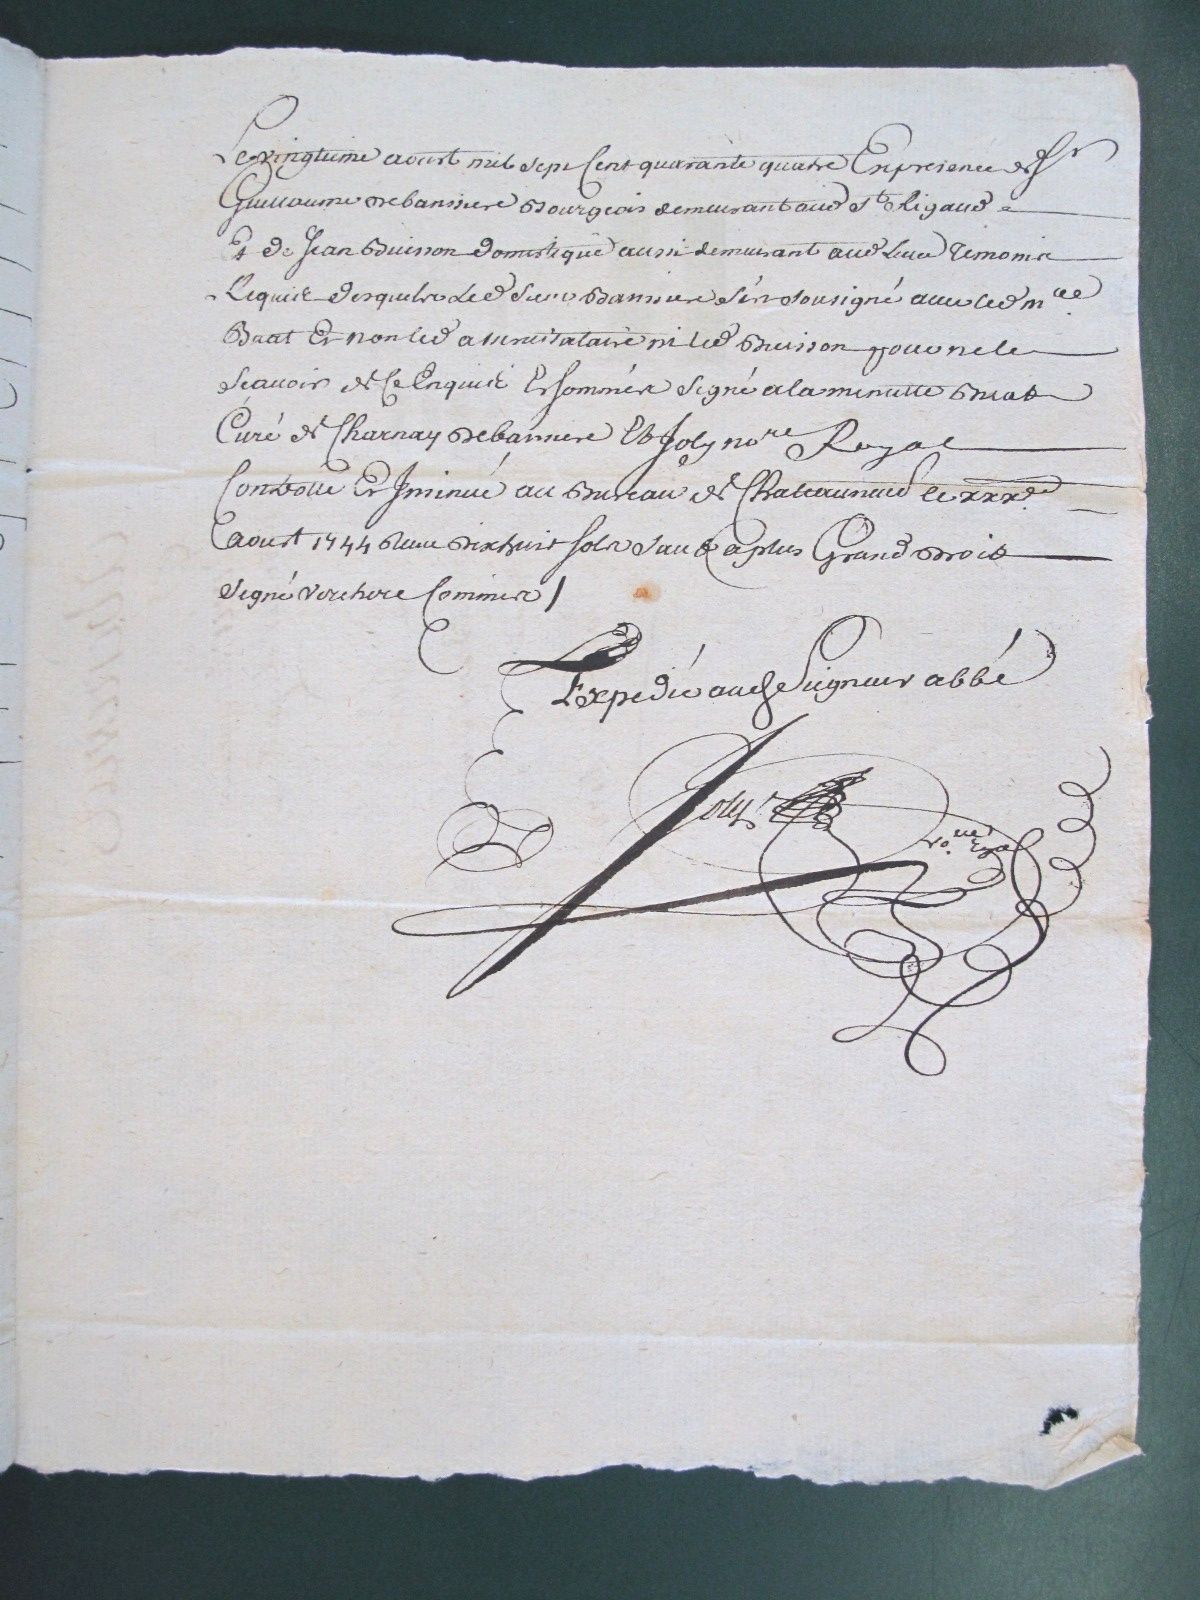 Le vingtiême aoust mil sept Cent quarante quatre En presence de Sr
Guillaume debaniere Bourgeois demeurant aud St Rigaud
Et de Jean Buisson domestique aussi demeurant aud lieu temoins
Requis desquels led Sieur Baniere s'est sousigné avec led mre
Buat Et non led ni led Buisson pour ne le
Scavoir de Ce Enquis Et sommés Signé a la minutte Buat
Curé de Charnay debaniere Et Joly nore Royal
Controllé Et Jnsinué au Bureau de Chateauneuf le xxxe
aoust 1744 Receu dixhuit sols sauf a plus Grand droit
Signé verchere Commis /
Expedié aud Seigneur abbé
Joly
No.re Royal